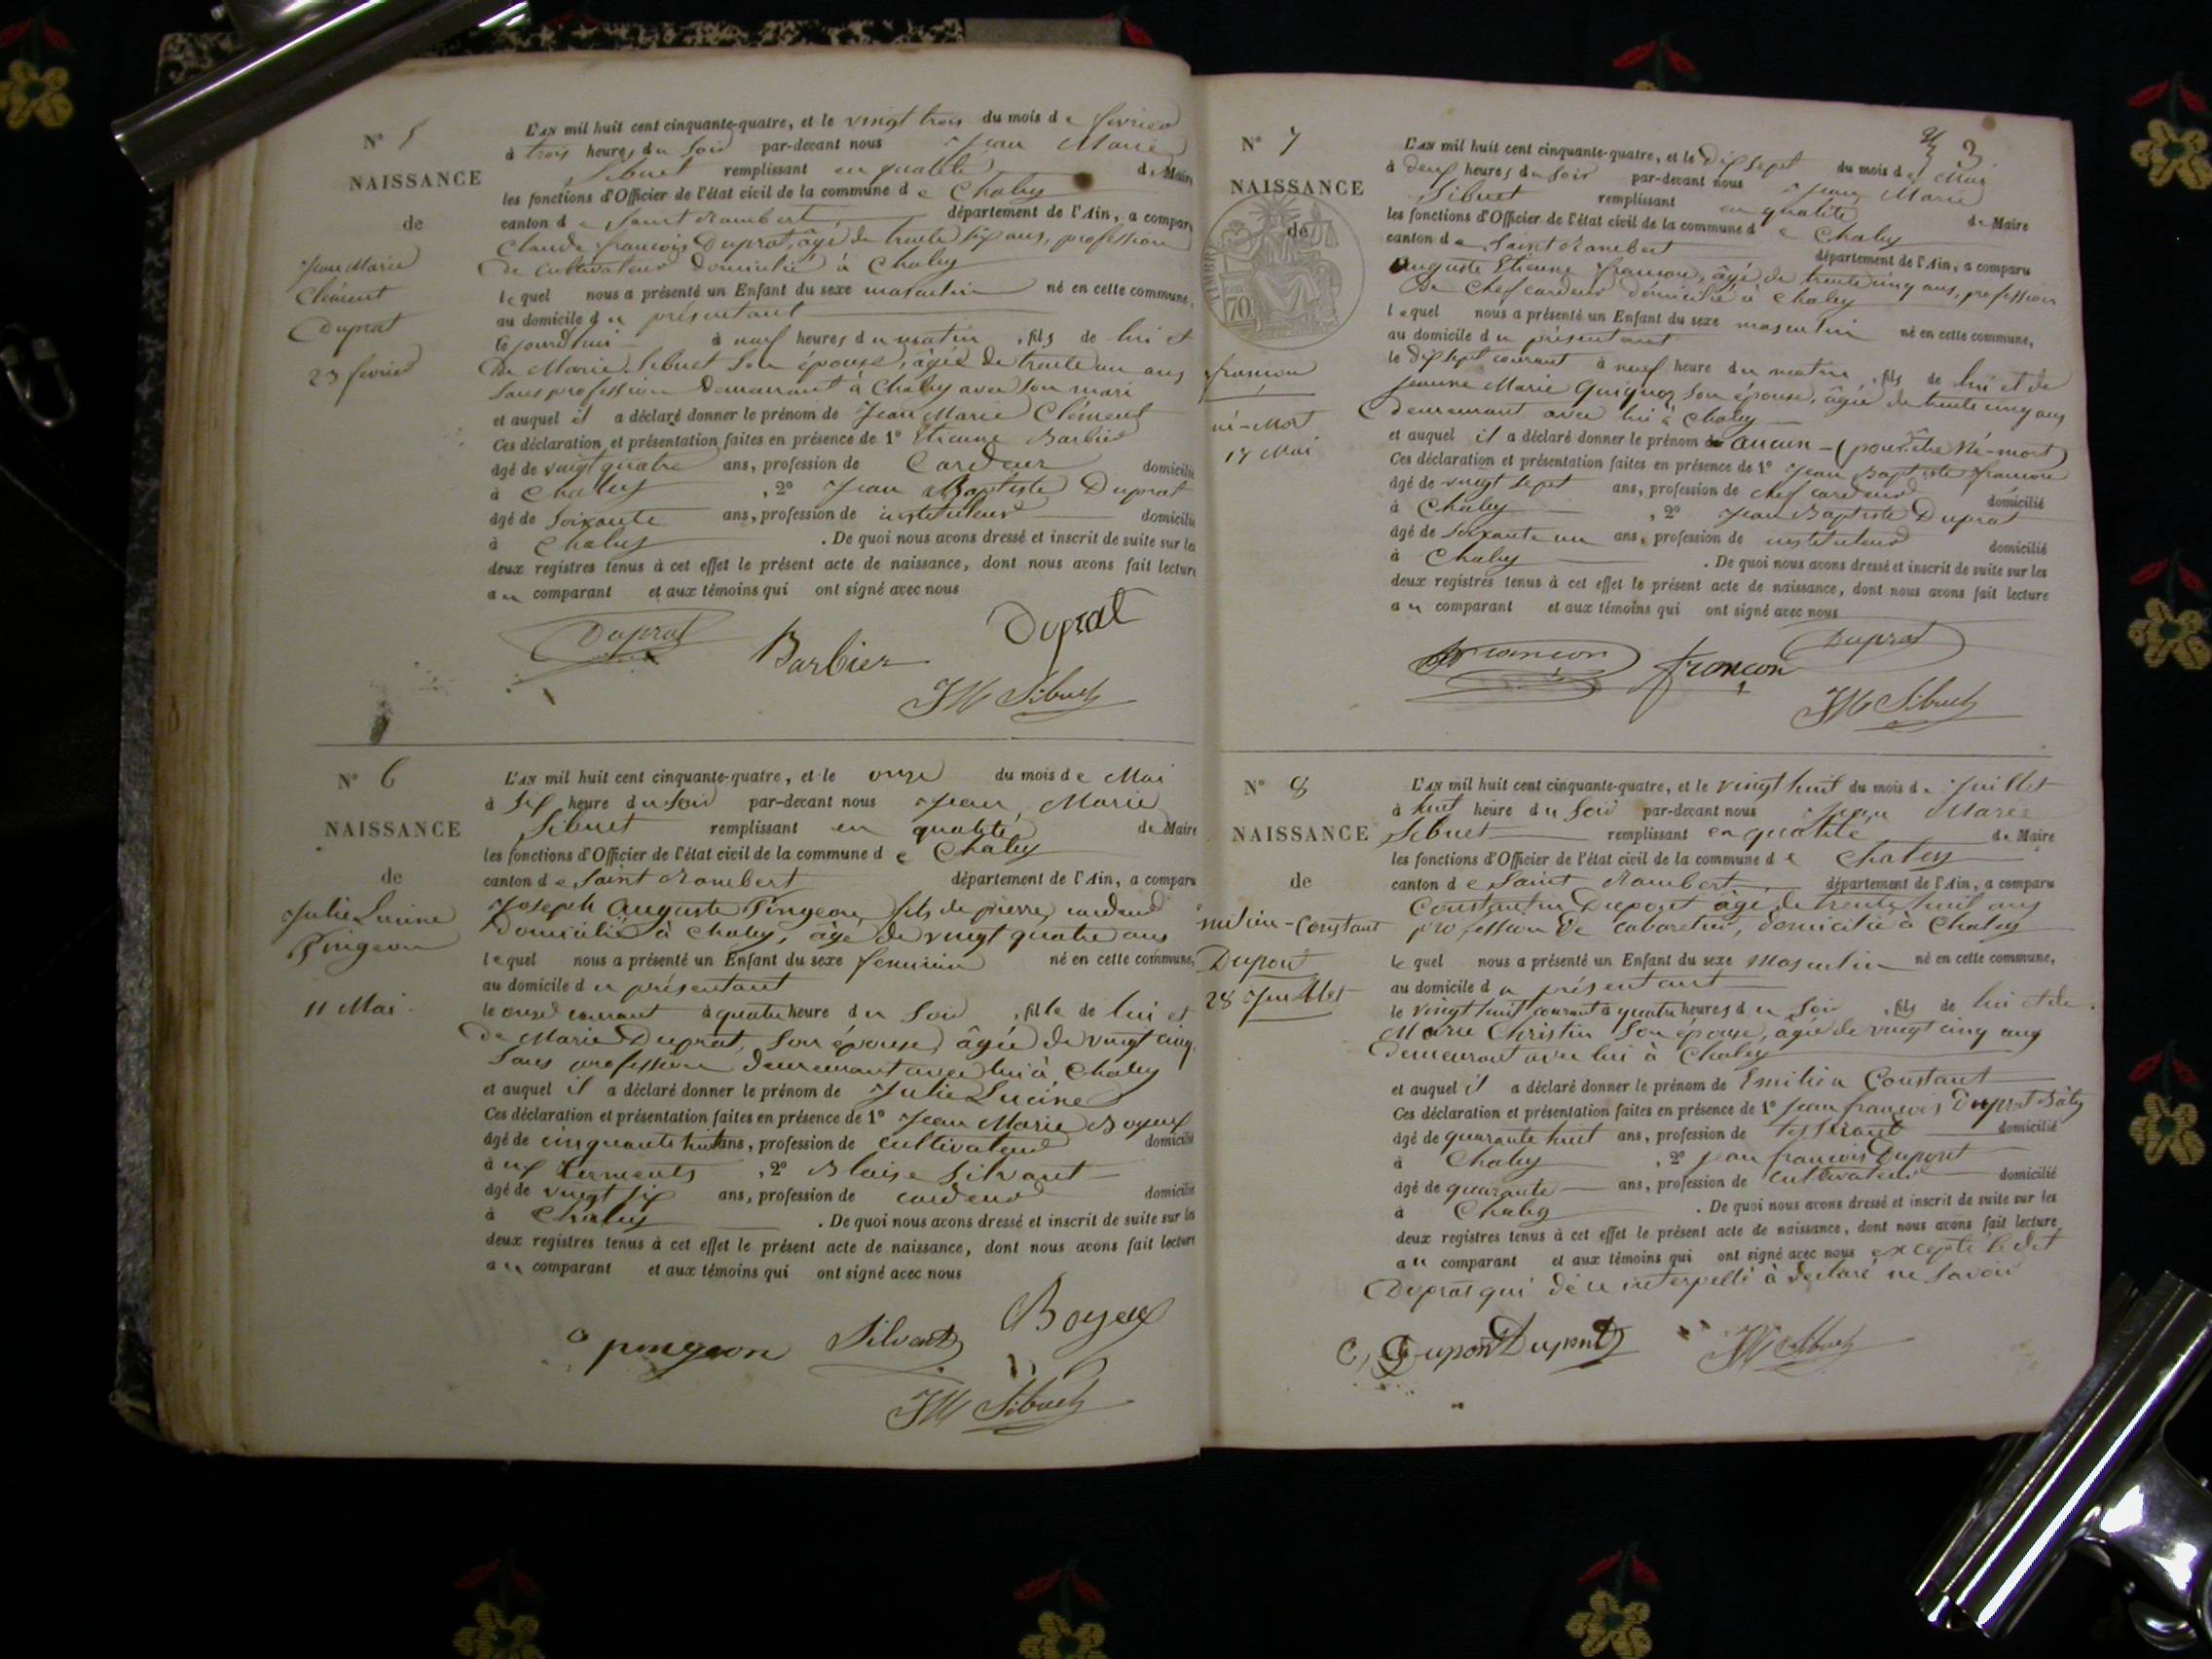 N° 5
NAISSANCE
de
Jean Marie
Clément
Duprat
23 février
L'AN mil huit cent cinquante-quatre, et le vingt trois du mois de février
à trois heures du soir par-devant nous Jean Marie
Sibuet remplissant en qualité de Maire
les fonctions d'Officier de l'état civil de la commune de Chaley
canton de Saint Rambert département de l'Ain, a comparu
Claude françois Duprat, âgé de trente six ans, profession
de cultivateur domicilié à Chaley
lequel nous a présenté un Enfant du sexe masculin né en cette commune,
au domicile du présentant
le jourd'hui à neuf heures du matin, fils de lui et
de Marie Sibuet son épouse, âgée de trente un ans
sans profession demeurant à Chaley avec son mari
et auquel il a déclaré donner le prénom de Jean Marie Clément
Ces déclaration et présentation faites en présence de 1° Etienne Barbier
âgé de vingt quatre ans, profession de Cardeur domicilié
à Chaley, 2° Jean Baptiste Duprat
âgé de soixante ans, profession de instituteur domicilié
à Chaley. De quoi nous avons dressé et inscrit de suite sur les
deux registres tenus à cet effet le présent acte de naissance, dont nous avons fait lecture
au comparant et aux témoins qui ont signé avec nous
Duprat Barbier Duprat
JM Sibuet
N° 6
NAISSANCE
de
Julie Lucine
Pingeon
11 Mai.
L'AN mil huit cent cinquante-quatre, et le onze du mois de Mai
à six heure du soir par-devant nous Jean Marie
Sibuet remplissant en qualité de Maire
les fonctions d'Officier de l'état civil de la commune de Chaley
canton de Saint Rambert département de l'Ain, a comparu
Joseph Auguste Pingeon, fils de pierre, cardeur
domicilié à Chaley, âgé de vingt quatre ans
lequel nous a présenté un Enfant du sexe feminin né en cette commune,
au domicile du présentant
le onze courant à quatre heure du soir, fille de lui et
de Marie Duprat, son épouse, âgée de vingt cinq
sans profession demeurant avec lui à Chaley
et auquel il a déclaré donner le prénom de Julie Lucine
Ces déclaration et présentation faites en présence de 1° Jean Marie Boyeux
âgé de cinquante huit ans, profession de cultivateur domicilié
à ux Terments, 2° Blaise Silvant
âgé de vingt six ans, profession de cardeur domicilié
à Chaley. De quoi nous avons dressé et inscrit de suite sur les
deux registres tenus à cet effet le présent acte de naissance, dont nous avons fait lecture
au comparant et aux témoins qui ont signé avec nous
pingeon Silvant Boyeux
JM Sibuet
3
N° 7
NAISSANCE
de
TIMBRE
70
françon
né-Mort
17 Mai
L'AN mil huit cent cinquante-quatre, et le Dix sept du mois de Mai
à deux heures du soir par-devant nous Jean Marie
Sibuet remplissant en qualité de Maire
les fonctions d'Officier de l'état civil de la commune de Chaley
canton de Saint Rambert département de l'Ain, a comparu
Auguste Etienne françon, âgé de trente cinq ans, profession
de Chef cardeur domicilié à Chaley
lequel nous a présenté un Enfant du sexe masculin né en cette commune,
au domicile du présentant
le dix sept courant à neuf heure du matin, fils de lui et de
Jeanne Marie Quiquoz son épouse, âgée de trente cinq ans
demeurant avec lui à Chaley
et auquel il a déclaré donner le prénom de aucun - (pour être Né-mort)
Ces déclaration et présentation faites en présence de 1° Jean Baptiste françon
âgé de vingt sept ans, profession de chef cardeur domicilié
à Chaley, 2° Jean Baptiste Duprat
âgé de soixante un ans, profession de instituteur domicilié
à Chaley. De quoi nous avons dressé et inscrit de suite sur les
deux registres tenus à cet effet le présent acte de naissance, dont nous avons fait lecture
au comparant et aux témoins qui ont signé avec nous
françon françon Duprat
JM Sibuet
N° 8
NAISSANCE
de
milien-Constant
Dupont
28 Juillet
L'AN mil huit cent cinquante-quatre, et le vingt huit du mois de Juillet
à huit heure du soir par-devant nous Jean Marie
Sibuet remplissant en qualité de Maire
les fonctions d'Officier de l'état civil de la commune de Chaley
canton de Saint Rambert département de l'Ain, a comparu
Constantin Dupont âgé de trente huit ans
profession de cabaretier, domicilié à Chaley
lequel nous a présenté un Enfant du sexe Masculin né en cette commune,
au domicile du présentant
le vingt huit courant à quatre heures du soir, fils de lui et de
Marie Christin son épouse, âgée de vingt cinq ans
demeurant avec lui à Chaley
et auquel il a déclaré donner le prénom de Emilien Constant
Ces déclaration et présentation faites en présence de 1° Jean françois Duprat
âgé de quarante huit ans, profession de tisserand domicilié
à Chaley, 2° jean françois Dupont
âgé de quarante ans, profession de cultivateur domicilié
à Chaley. De quoi nous avons dressé et inscrit de suite sur les
deux registres tenus à cet effet le présent acte de naissance, dont nous avons fait lecture
au comparant et aux témoins qui ont signé avec nous excepté le dit
Duprat qui de ce interpellé à déclaré ne savoir
C, Dupont Dupont JM Sibuet